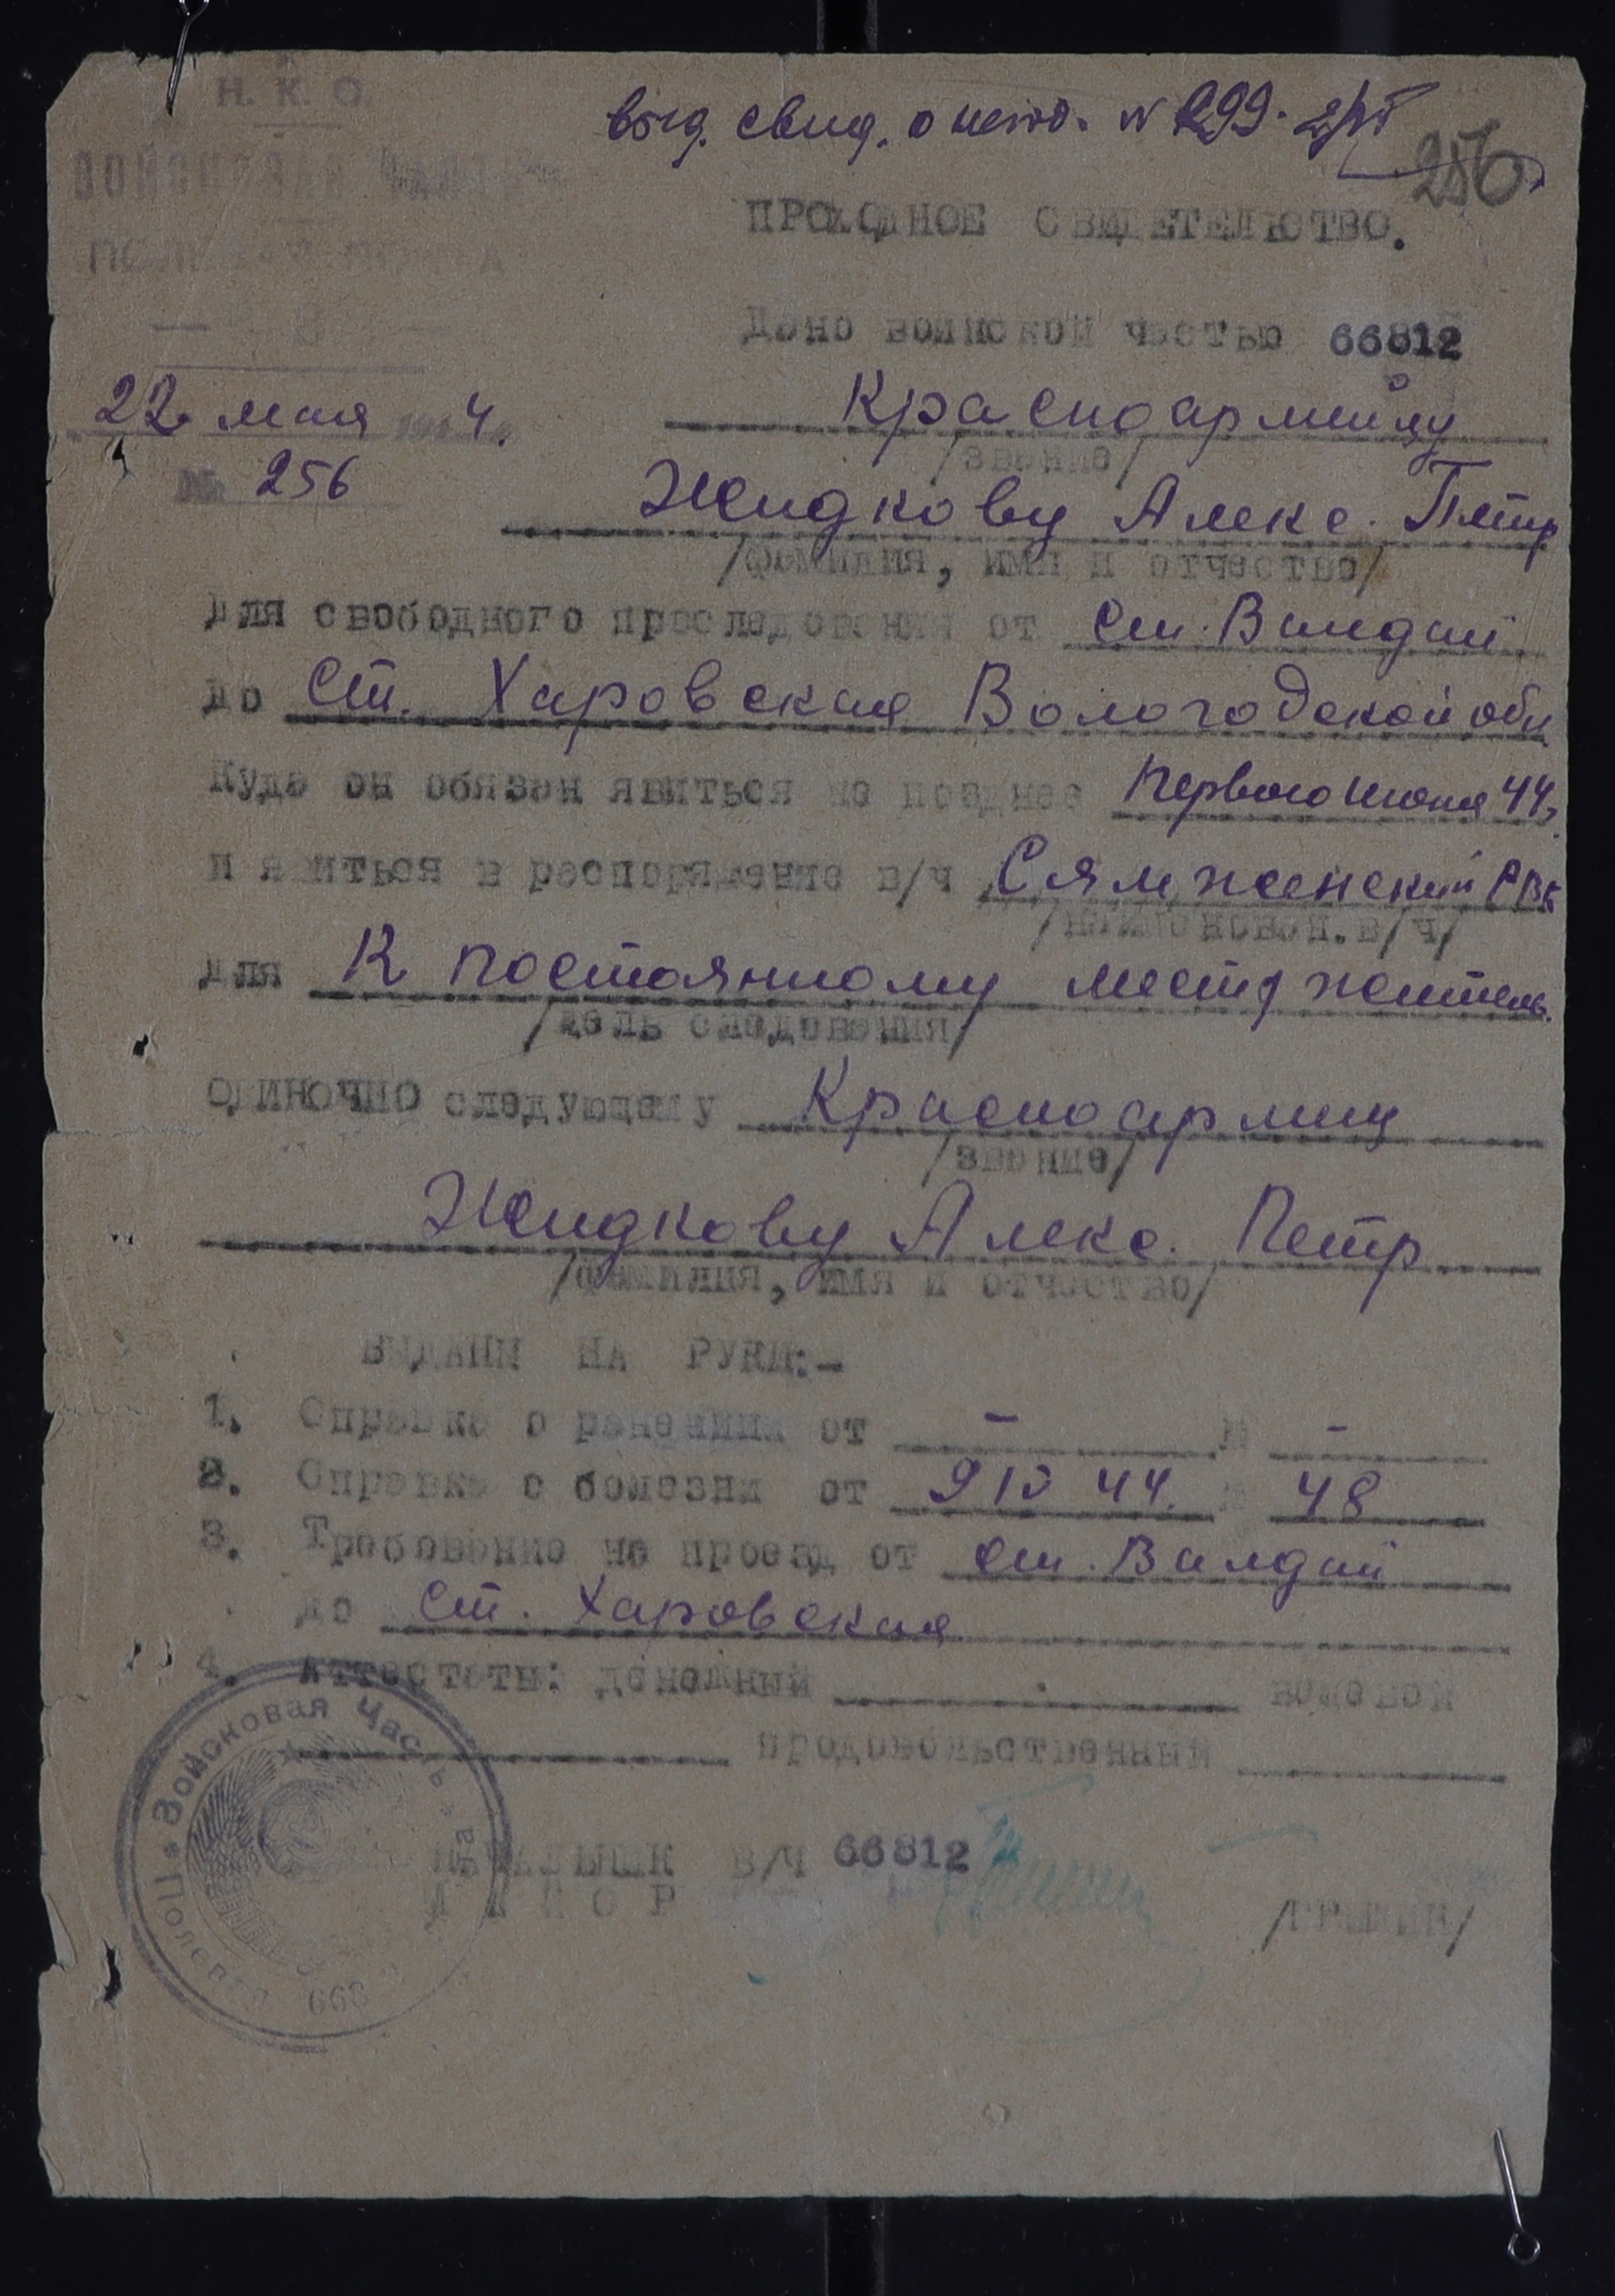 Н. К. О
выд. свид. о негод. № 299. 2/VI
256
ВОЙСКОВАЯ ЧАСТЬ
ПОЛЕВАЯ ПОЧТА
ПРОХОДНОЕ СВИДЕТЕЛЬСТВО.
Дано воинской частью 66812
22 мая 194 4.
Красноармейцу
/звание/
№ 256
Жидкову Алекс. Петр
/фамилия, имя и отчество/
для свободного проследования от ст. Валдай
до ст. Харовская Вологодской обл
Куда он обязан явиться не позднее Первого июня 44г
и явиться в распоряжение в/ч Сямженский РВК
/наименован. в/ч/
для К постоянному месту жительс.
/цель следования/
одиночно следующему Красноармейц
/звание/
Жидкову Алекс. Петр
/фамилия, имя и отчество/
ВЫДАНЫ НА РУКИ:-
1. Справка о ранении от - № -
2. Справка о болезни от 9 IV 44. № 48
3. Требование на проезд от ст. Валдай
до ст. Харовская
4. Аттестаты: денежный вещевой
продовольственный
Войсковая Часть * Полевая 668
НАЧАЛЬНИК В/Ч 66812
МАЙОР